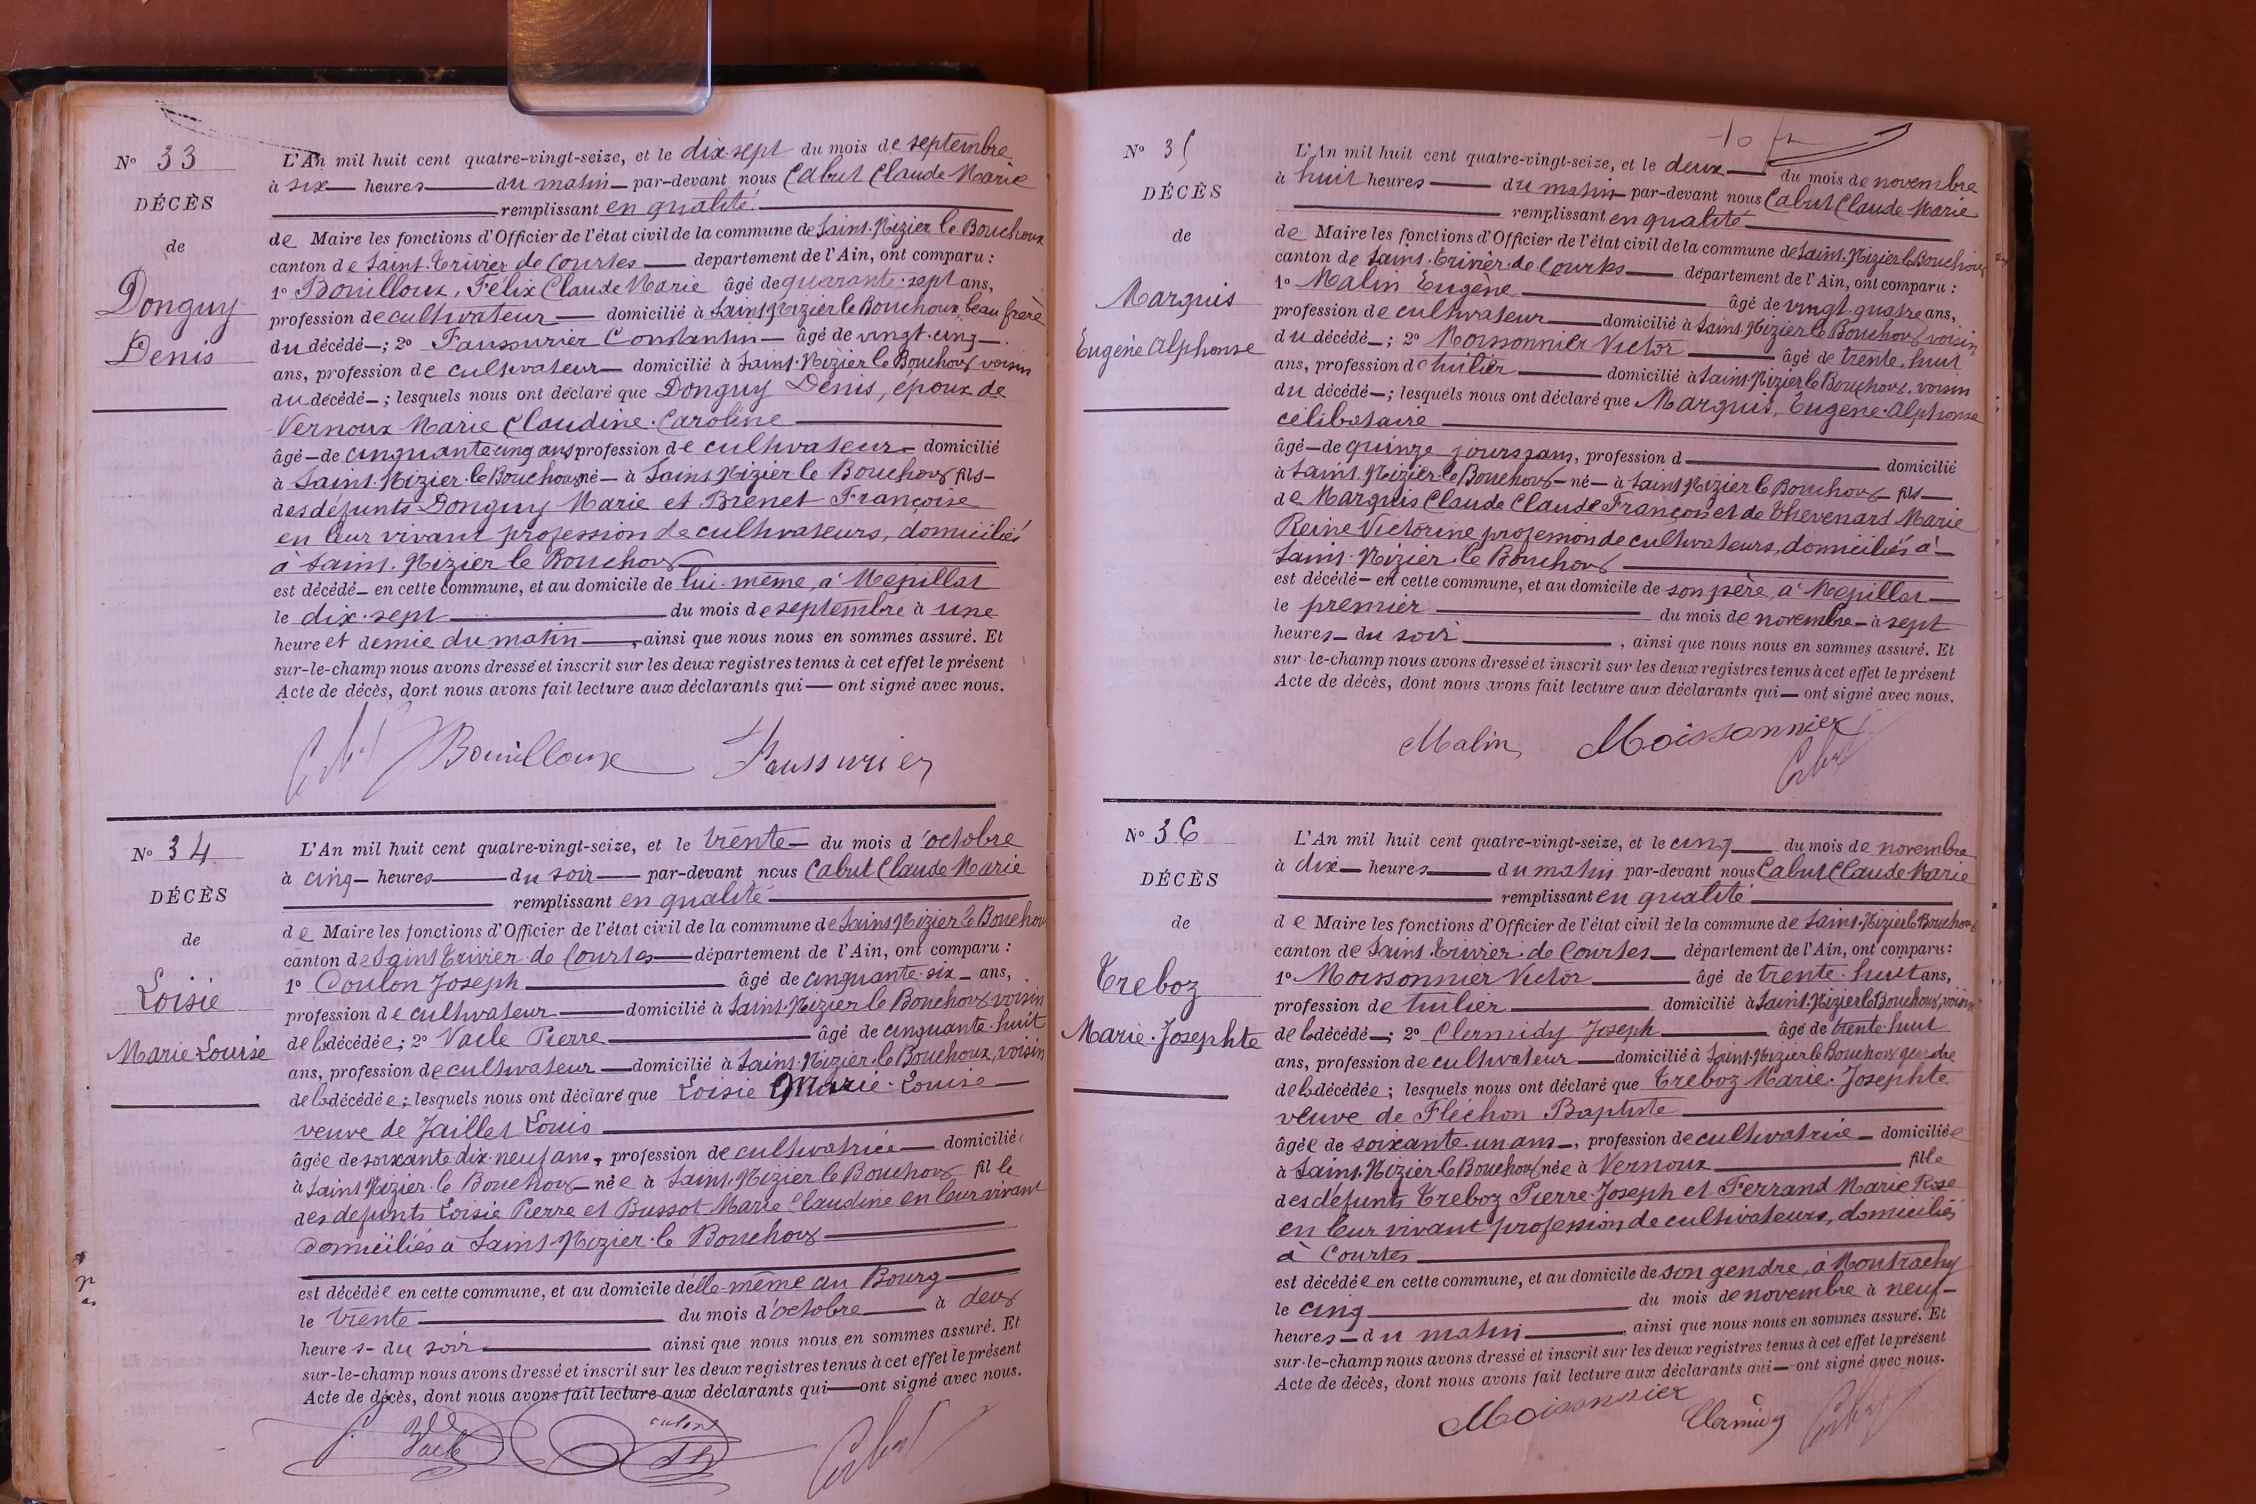 N° 33
DÉCÈS
de
Donguy
Denis
L'An mil huit cent quatre-vingt-seize, et le dix sept du mois de septembre
à six heures du matin par-devant nous Cabut Claude Marie
remplissant en qualité
de Maire les fonctions d'Officier de l'état civil de la commune de Saint-Nizier le Bouchoux
canton de Saint-Trivier de Courtes département de l'Ain, ont comparu :
1° Bouilloux, Félix Claude Marie âgé de quarante-sept ans,
profession de cultivateur domicilié à Saint Nizier le Bouchoux, beau frère
du décédé ; 2° Faussurier Constantin âgé de vingt-cinq
ans, profession de cultivateur domicilié à Saint-Nizier le Bouchoux voisin
du décédé ; lesquels nous ont déclaré que Donguy Denis, époux de
Vernoux Marie Claudine Caroline
âgé de cinquante cinq ans profession de cultivateur domicilié
à Saint-Nizier-le Bouchoux né à Saint Nizier le Bouchoux fils
des défunts Donguy Marie et Brenet Françoise
en leur vivant profession de cultivateurs, domiciliés
à Saint-Nizier le Bouchoux
est décédé en cette commune, et au domicile de lui-même, à Mépillat
le dix-sept du mois de septembre à une
heure et demie du matin, ainsi que nous nous en sommes assuré. Et
sur-le-champ nous avons dressé et inscrit sur les deux registres tenus à cet effet le présent
Acte de décès, dont nous avons fait lecture aux déclarants qui ont signé avec nous.
Cabut Bouilloux Faussurier
N° 34
DÉCÈS
de
Loisie
Marie Louise
L'An mil huit cent quatre-vingt-seize, et le trente du mois d'octobre
à cinq heures du soir par-devant nous Cabut Claude Marie
remplissant en qualité
de Maire les fonctions d'Officier de l'état civil de la commune de Saint Nizier le Bouchoux
canton de Saint Trivier de Courtes département de l'Ain, ont comparu :
1° Coulon Joseph âgé de cinquante-six ans,
profession de cultivateur domicilié à Saint-Nizier le Bouchoux voisin
de la décédée ; 2° Vaile Pierre âgé de cinquante-huit
ans, profession de cultivateur domicilié à Saint-Nizier-le Bouchoux, voisin
de la décédée ; lesquels nous ont déclaré que Loisie Marie-Louise
veuve de Jaillet Louis
âgée de soixante dix-neuf ans, profession de cultivatrice domiciliée
à Saint Nizier-le Bouchoux née à Saint-Nizier le Bouchoux fille
des défunts Loisie Pierre et Bussot Marie Claudine en leur vivant
domiciliés à Saint-Nizier-le Bouchoux
est décédée en cette commune, et au domicile d'elle-même au Bourg
le trente du mois d'octobre à deux
heures du soir ainsi que nous nous en sommes assuré. Et
sur-le-champ nous avons dressé et inscrit sur les deux registres tenus à cet effet le présent
Acte de décès, dont nous avons fait lecture aux déclarants qui ont signé avec nous.
Vaile Cabut
N° 35
DÉCÈS
de
Marguis
Eugène Alphonse
L'An mil huit cent quatre-vingt-seize, et le deux du mois de novembre
à huit heures du matin par-devant nous Cabut Claude Marie
remplissant en qualité
de Maire les fonctions d'Officier de l'état civil de la commune de Saint-Nizier le Bouchoux
canton de Saint-Trivier-de Courtes département de l'Ain, ont comparu :
1° Malin Eugène âgé de vingt-quatre ans,
profession de cultivateur domicilié à Saint Nizier le Bouchoux voisin
du décédé ; 2° Moissonnier Victor âgé de trente-huit
ans, profession de tuilier domicilié à Saint-Nizier le Bouchoux, voisin
du décédé ; lesquels nous ont déclaré que Marguis, Eugène-Alphonse
célibataire
âgé de quinze jours ans, profession d domicilié
à Saint-Nizier-le Bouchoux né à Saint Nizier le Bouchoux fils
de Marguis Claude Claude François et de Thevenard Marie
Reine Victorine profession de cultivateurs, domiciliés à
Saint-Nizier-le Bouchoux
est décédé en cette commune, et au domicile de son père, à Mépillat
le premier du mois de novembre à sept
heures du soir, ainsi que nous nous en sommes assuré. Et
sur-le-champ nous avons dressé et inscrit sur les deux registres tenus à cet effet le présent
Acte de décès, dont nous avons fait lecture aux déclarants qui ont signé avec nous.
Malin Moissonnier
Cabut
N° 36
DÉCÈS
de
Treboz
Marie-Josephte
L'An mil huit cent quatre-vingt-seize, et le cinq du mois de novembre
à dix heures du matin par-devant nous Cabut Claude Marie
remplissant en qualité
de Maire les fonctions d'Officier de l'état civil de la commune de Saint-Nizier le Bouchoux
canton de Saint Trivier-de Courtes département de l'Ain, ont comparu :
1° Moissonnier Victor âgé de trente-huit ans,
profession de tuilier domicilié à Saint-Nizier le Bouchoux, voisin
de la décédé ; 2° Clermidy Joseph âgé de trente-huit
ans, profession de cultivateur domicilié à Saint-Nizier le Bouchoux gendre
de la décédée ; lesquels nous ont déclaré que Treboz Marie-Josephte
veuve de Fléchon Baptiste
âgée de soixante-un ans, profession de cultivatrice domiciliée
à Saint-Nizier-le Bouchoux née à Vernoux fille
des défunts Treboz Pierre-Joseph et Ferrand Marie Rose
en leur vivant profession de cultivateurs, domiciliés
à Courtes
est décédée en cette commune, et au domicile de son gendre, à Montrachy
le cinq du mois de novembre à neuf
heures du matin, ainsi que nous nous en sommes assuré. Et
sur-le-champ nous avons dressé et inscrit sur les deux registres tenus à cet effet le présent
Acte de décès, dont nous avons fait lecture aux déclarants qui ont signé avec nous.
Moissonnier Clermidy Cabut